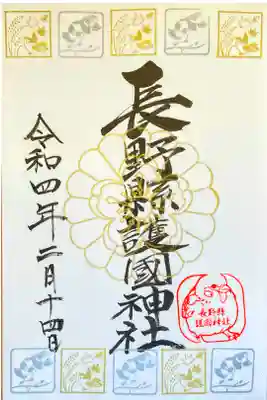 長野縣護國神社
令和四年二月十四日
長野縣
護國神社